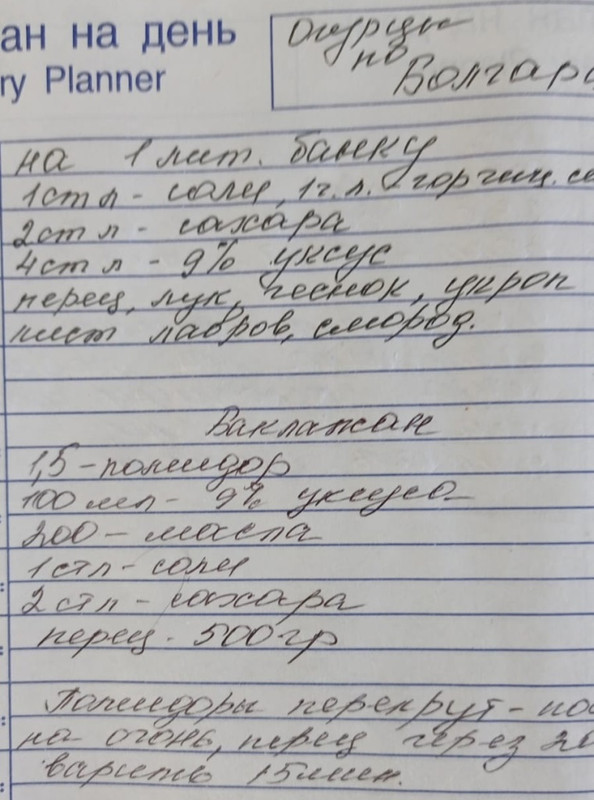 ан на день
ry Planner
Огурцы
по
Болгарс
на 1 лит. банку
1 ст л - соли, 1 ч. л. - горчиц. се
2 ст л - сахара
4 ст л - 9% уксус
перец, лук, чеснок, укроп
лист лавров, смород.
Баклажан
1,5 - помидор
100 мл - 9% уксуса
200 - масла
1 стл - соли
2 стл - сахара
перец - 500 гр
Помидоры перекрут - пос
на огонь, перец через 20
варить 15 мин.